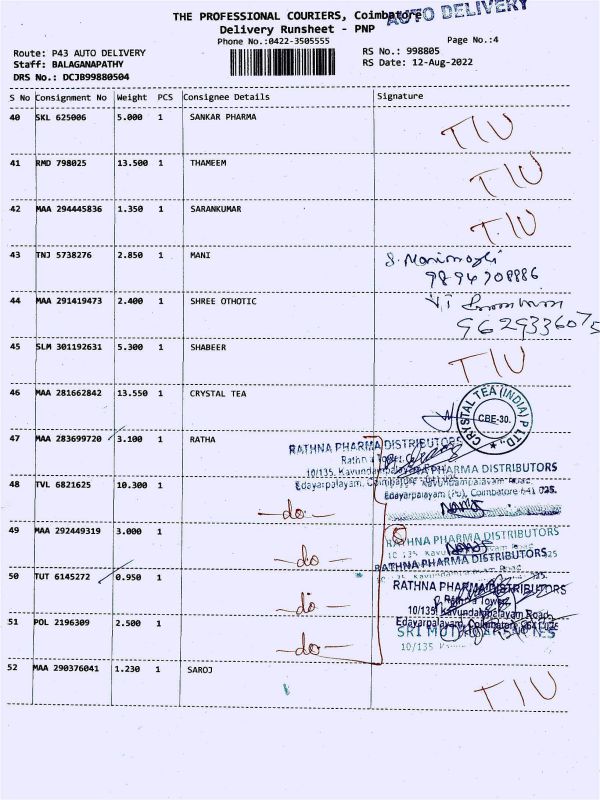 THE PROFESSIONAL COURIERS, Coimbatore
AUTO DELIVERY
Delivery Runsheet - PNP
Phone No.:0422-3505555
Page No.:4
Route: P43 AUTO DELIVERY
RS No.: 998805
Staff: BALAGANAPATHY
RS Date: 12-Aug-2022
DRS No.: DCJB99880504
S No Consignment No Weight PCS Consignee Details Signature
40 SKL 625006 5.000 1 SANKAR PHARMA TIU
41 RMD 798025 13.500 1 THAMEEM TIU
42 MAA 294445836 1.350 1 SARANKUMAR T.IU
43 TNJ 5738276 2.850 1 MANI S. Manimozhi
9894708986
44 MAA 291419473 2.400 1 SHREE OTHOTIC
9629336075
45 SLM 301192631 5.300 1 SHABEER TIU
46 MAA 281662842 13.550 1 CRYSTAL TEA
CRYSTAL TEA (INDIA) P LTD.
CBE-30.
47 MAA 283699720 3.100 1 RATHA
RATHNA PHARMA DISTRIBUTORS
Rathna Tower,
10/135, Kavundampalayam
RATHNA PHARMA DISTRIBUTORS
Edayarpalayam, Coimbatore
Kavundampalayam Road,
48 TVL 6821625 10.300 1
Edayarpalayam (Po), Coimbatore 641 025.
-do-
49 MAA 292449319 3.000 1
RATHNA PHARMA DISTRIBUTORS
-do-
RATHNA PHARMA DISTRIBUTORS
50 TUT 6145272 0.950 1
RATHNA PHARMA DISTRIBUTORS
-do-
Rathna Tower,
10/135, Kavundampalayam Road,
51 POL 2196309 2.500 1
Edayarpalayam, Coimbatore
SRI
-do-
10/135
52 MAA 290376041 1.230 1 SAROJ TIU